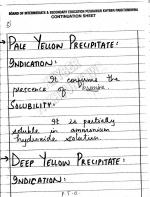 BOARD OF INTERMEDIATE & SECONDARY EDUCATION PESHAWAR KHYBER PAKHTUNKHWA
CONTINUATION SHEET
PALE YELLOW PRECIPITATE:
INDICATION:
It confirms the
prescence of bromine.
SOLUBILITY:
It is partially
soluble in ammonium
hydroxide solution.
DEEP YELLOW PRECIPITATE:
INDICATION:
P.T.O.